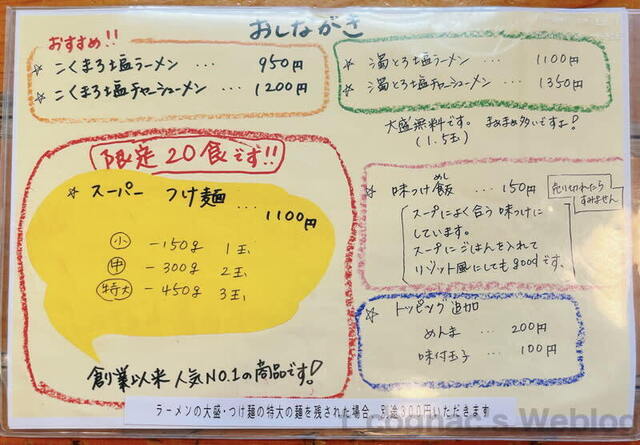 おしながき
おすすめ!!
☆ こくまろ塩ラーメン … 950円
☆ こくまろ塩チャーシューメン … 1200円
☆ 濁とろ塩ラーメン … 1100円
☆ 濁とろ塩チャーシューメン … 1350円
大盛無料です。まあまあ多いですよ!
(1.5玉)
限定20食です!!
☆ スーパー つけ麺 … 1100円
小 -150g 1玉
中 -300g 2玉
特大 -450g 3玉
創業以来人気NO.1の商品です!
☆ 味つけ飯 … 150円
めし
売り切れたら
すみません
スープによく合う味つけに
しています。
スープにごはんを入れて
リゾット風にしてもgoodです。
☆ トッピング追加
めんま … 200円
味付玉子 … 100円
ラーメンの大盛・つけ麺の特大の麺を残された場合、別途300円いただきます
cognac's Weblog